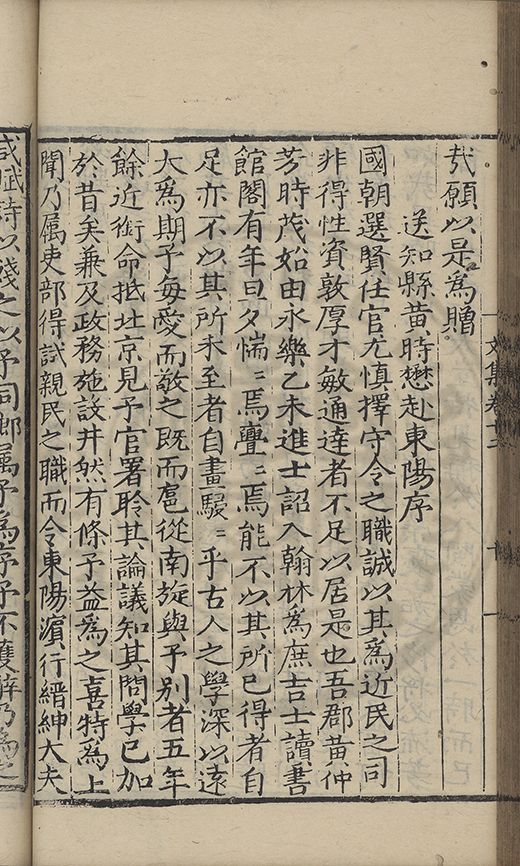 㢤願以是爲贈
送知縣黄時懋赴東陽序
國朝選賢任官尤慎擇守令之職誠以其爲近民之司
非得性資敦厚才敏通達者不足以居是也吾郡黄仲
芳時茂如由永樂乙未進士詔入翰林爲庶吉士讀書
館閣有年旦夕惴〻焉亹〻焉能不以其所已得者自
足亦不以其所未至者自畫駸〻乎古人之學深以遠
大爲期予每愛而敬之既而扈從南旋與予别者五年
餘近銜命抵北京見予官署聆其論議知其問學已加
於昔矣兼及政務施設井然有條予益爲之喜特爲上
聞乃属吏部得試親民之職而令東陽濵行縉紳大夫
咸賦詩以餞之以予同鄉属予爲序予不獲辭乃爲之
文集卷十二
十一